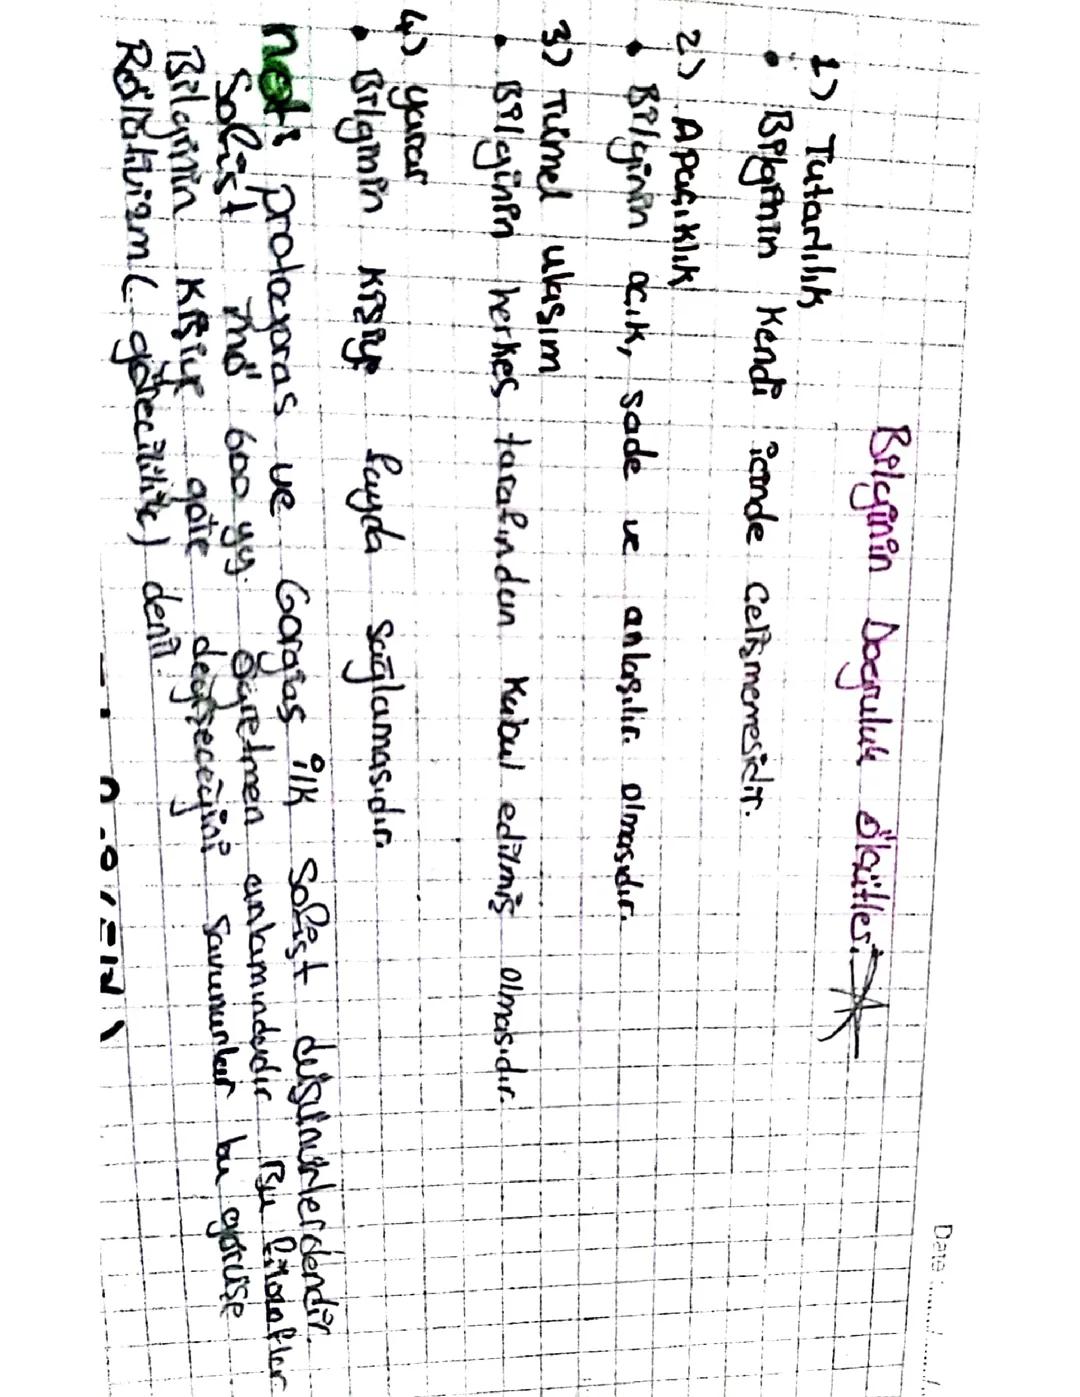 Date: ......./....
Bilginin Doğruluk ölçütleri
1) Tutarlılık
• Bilginin kendi içinde çelişmemesidir.
2) Apaçıklık
• Bilginin açık, sade ve anlaşılır olmasıdır.
3) Tümel uLaşım
• Bilginin herkes tarafından kabul edilmiş olmasıdır.
4) yarar
• Bilginin kişiye fayda sağlamasıdır.
not: protogoras ve Gorgias ilk sofist düşünürlerdendir.
Sofist mö 600 yy. öğretmen anlamındadır Bu filozoflar
Bilginin kişiye göre değişeceğini savunurlar bu görüşe
Rölativizm (görecililik) denir.